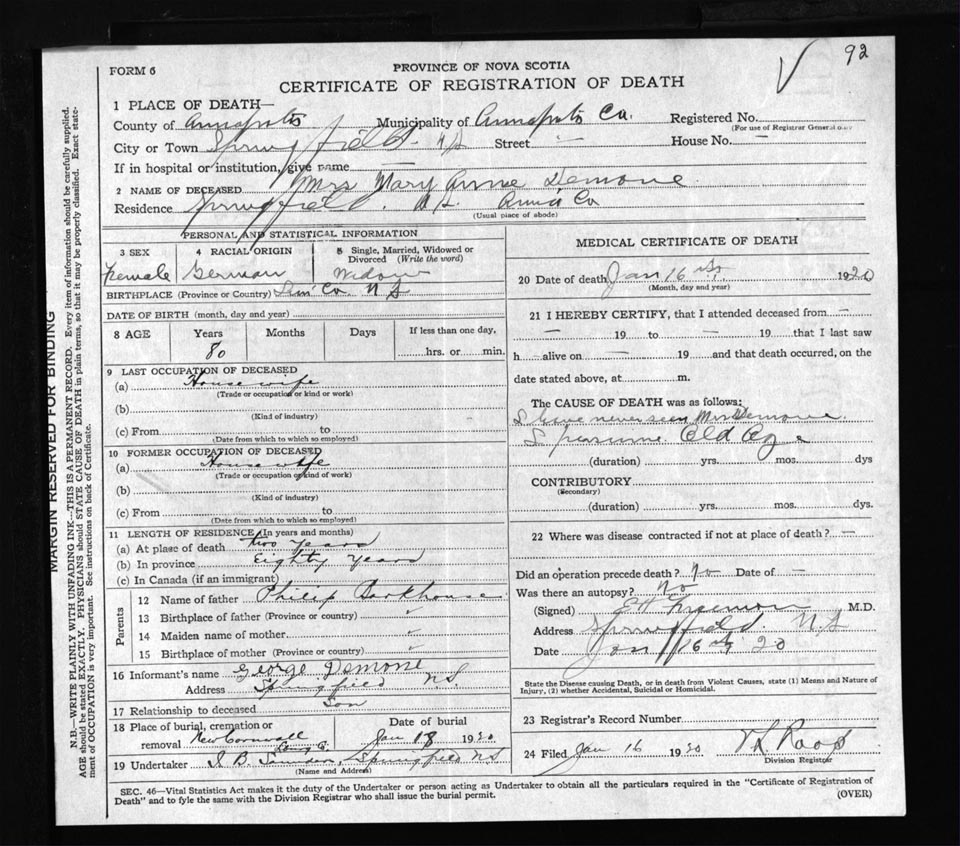 92
FORM 6
PROVINCE OF NOVA SCOTIA
CERTIFICATE OF REGISTRATION OF DEATH
1 PLACE OF DEATH—
County of Annapolis Municipality of Annapolis Co. Registered No.
(For use of Registrar General only)
City or Town Springfield N S Street — House No. —
If in hospital or institution, give name —
2 NAME OF DECEASED Mrs Mary Annie Demone
Residence Springfield. N S. Co
(Usual place of abode)
PERSONAL AND STATISTICAL INFORMATION
3 SEX 4 RACIAL ORIGIN 5 Single, Married, Widowed or Divorced (Write the word)
Female German Widow
BIRTHPLACE (Province or Country) Co N S
DATE OF BIRTH (month, day and year)
8 AGE Years Months Days If less than one day,
80 hrs. or min.
9 LAST OCCUPATION OF DECEASED
(a) House wife
(Trade or occupation or kind or work)
(b)
(Kind of industry)
(c) From to
(Date from which to which so employed)
10 FORMER OCCUPATION OF DECEASED
(a) House wife
(Trade or occupation or kind of work)
(b)
(Kind of industry)
(c) From to
(Date from which to which so employed)
11 LENGTH OF RESIDENCE (In years and months)
(a) At place of death two years
(b) In province Eighty years
(c) In Canada (if an immigrant)
Parents
12 Name of father Philip Barkhouse
13 Birthplace of father (Province or country) "
14 Maiden name of mother "
15 Birthplace of mother (Province or country) "
16 Informant's name George Demone
Address Springfield N.S.
17 Relationship to deceased Son
18 Place of burial, cremation or removal New Cornwall Date of burial
Lung Co. Jan 18 1920
19 Undertaker Springfield N S
(Name and Address)
MEDICAL CERTIFICATE OF DEATH
20 Date of death Jan 16 th 1920
(Month, day and year)
21 I HEREBY CERTIFY, that I attended deceased from —
— 19 to — 19 that I last saw
h — alive on — 19 and that death occurred, on the
date stated above, at m.
The CAUSE OF DEATH was as follows:
I have never seen Mrs Demone.
I presume Old Age
(duration) yrs. mos. dys
CONTRIBUTORY
(Secondary)
(duration) yrs. mos. dys.
22 Where was disease contracted if not at place of death? —
Did an operation precede death? No Date of —
Was there an autopsy? No
(Signed) Freeman M.D.
Address Springfield N S
Date Jan 16 th 20
State the Disease causing Death, or in death from Violent Causes, state (1) Means and Nature of
Injury, (2) whether Accidental, Suicidal or Homicidal.
23 Registrar's Record Number
24 Filed Jan 16 1920 Roop
Division Registrar
SEC. 46—Vital Statistics Act makes it the duty of the Undertaker or person acting as Undertaker to obtain all the particulars required in the "Certificate of Registration of
Death" and to fyle the same with the Division Registrar who shall issue the burial permit. (OVER)
MARGIN RESERVED FOR BINDING
N.B.—WRITE PLAINLY WITH UNFADING INK—THIS IS A PERMANENT RECORD. Every item of information should be carefully supplied.
AGE should be stated EXACTLY. PHYSICIANS should STATE CAUSE OF DEATH in plain terms, so that it may be properly classified. Exact state-
ment of OCCUPATION is very important. See instructions on back of Certificate.